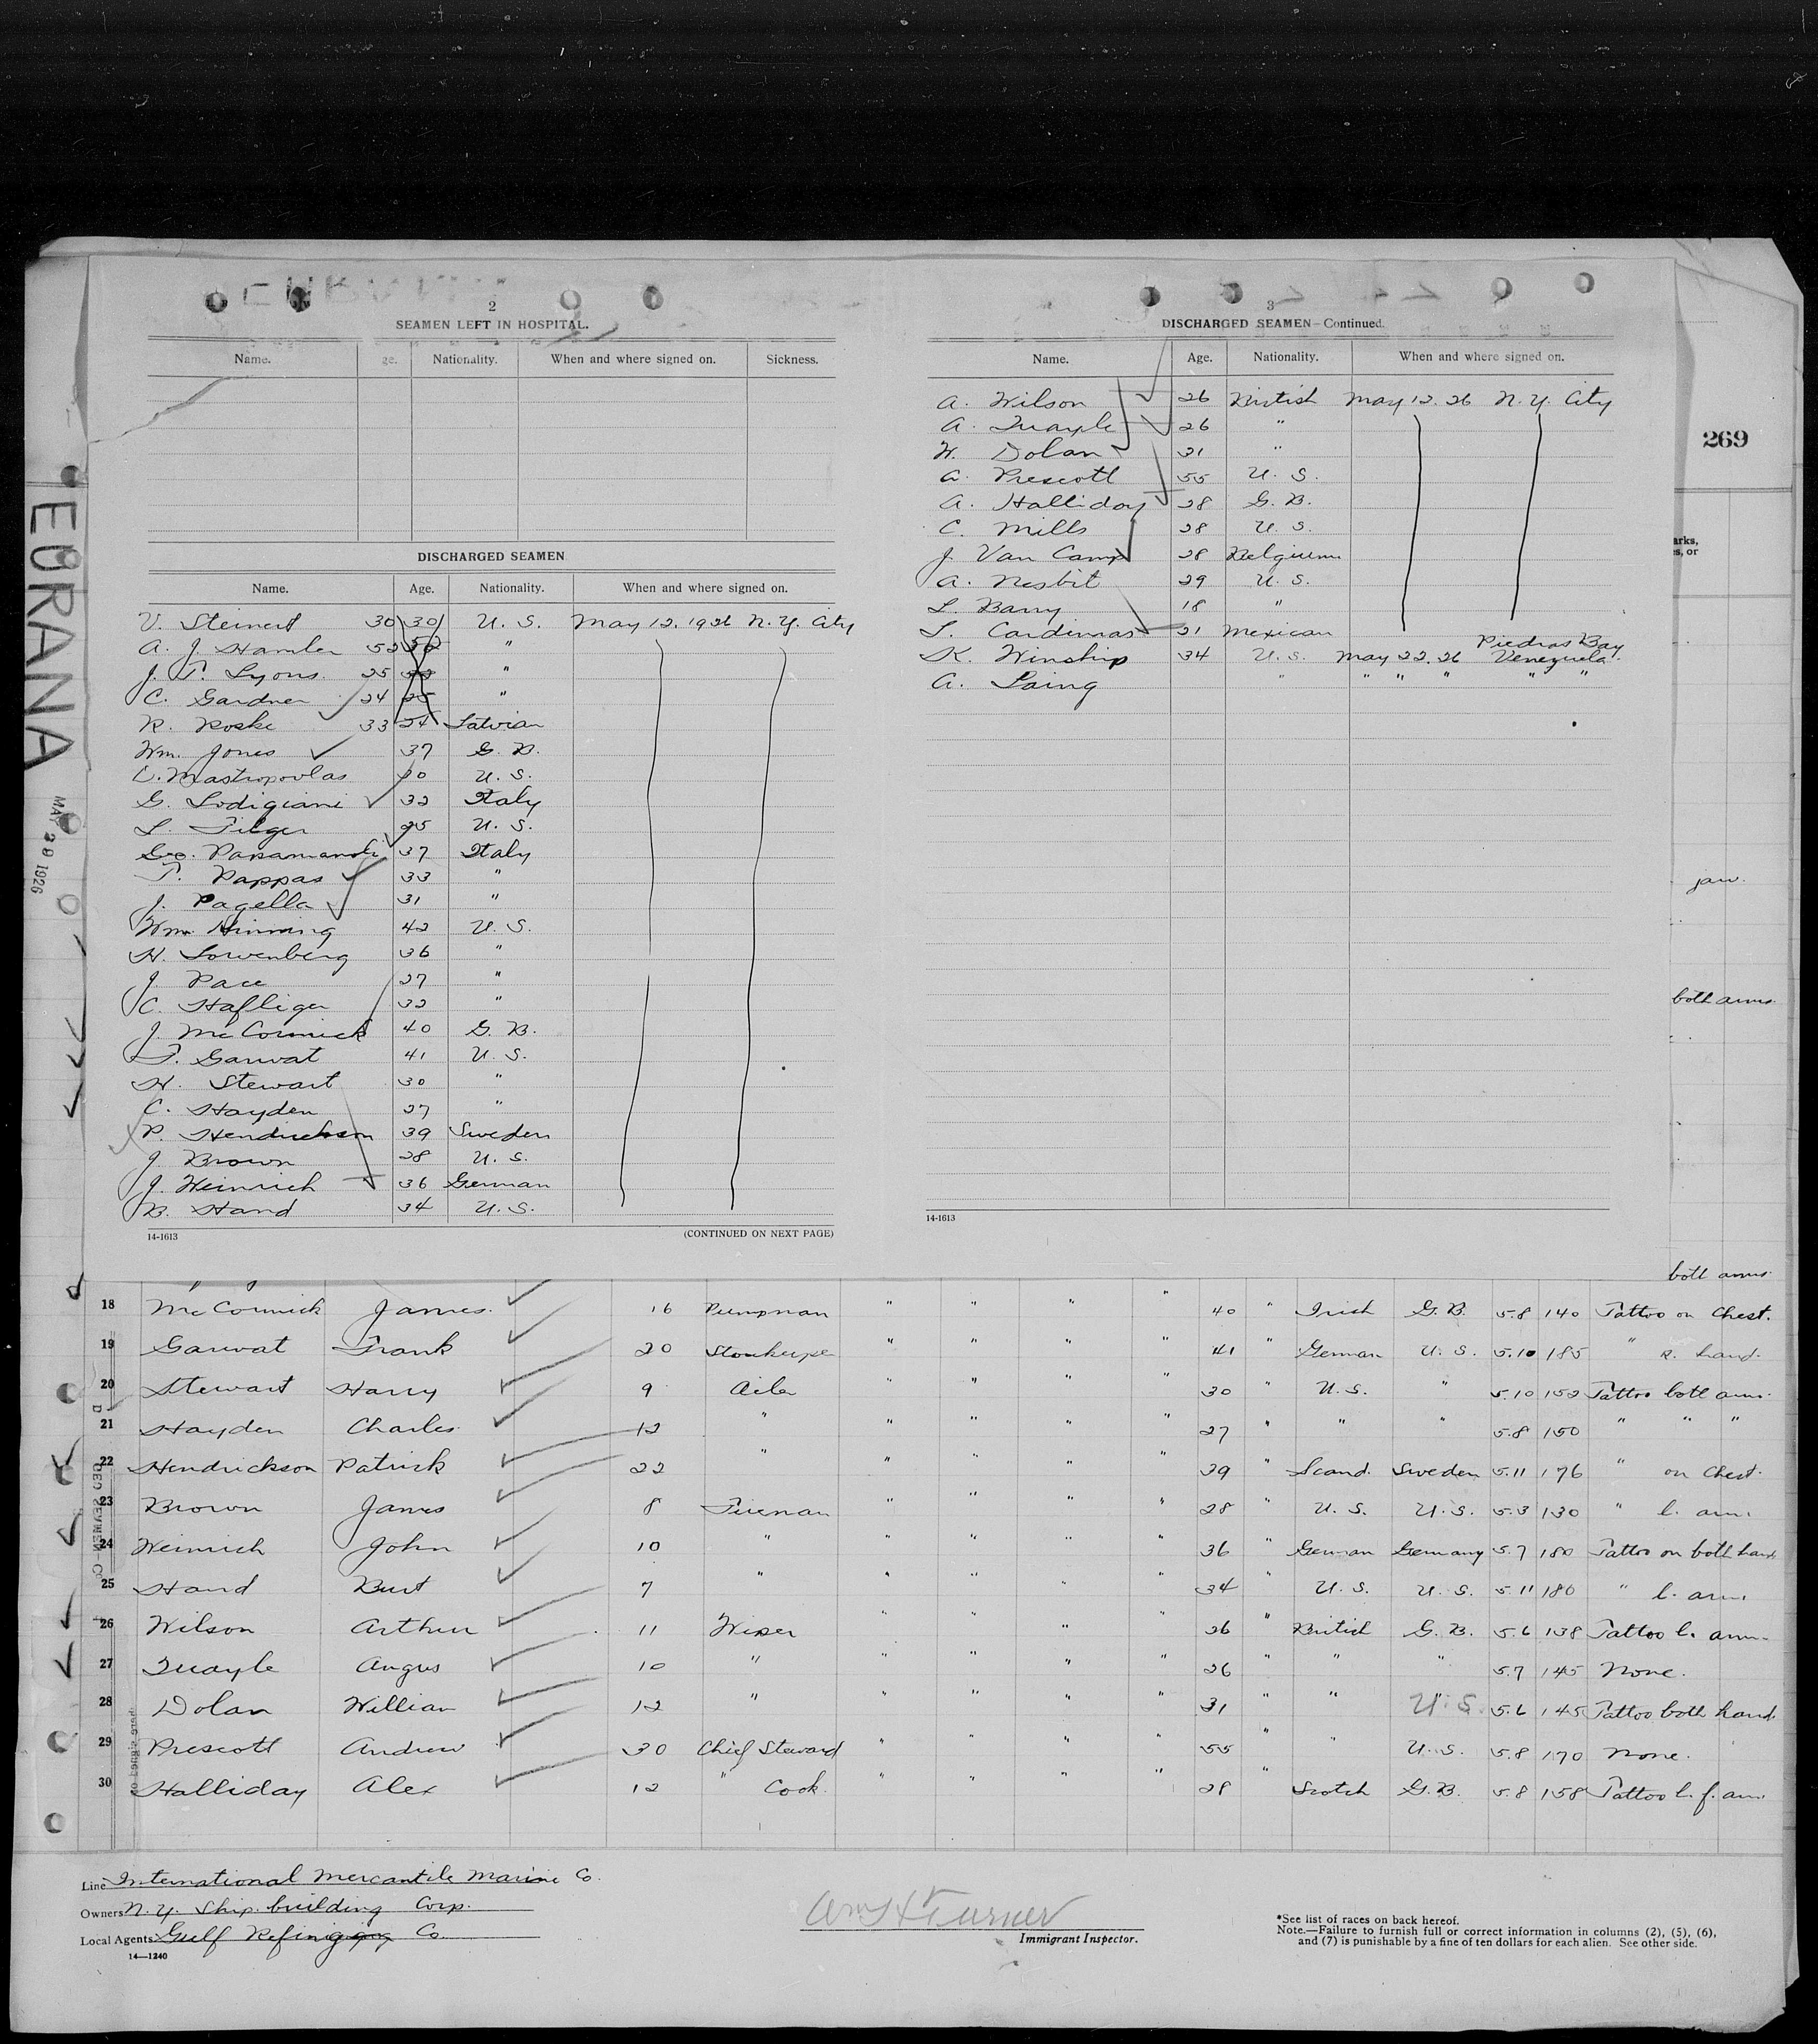 EURANA
MAY 29 1926
2
SEAMEN LEFT IN HOSPITAL.
Name. ge. Nationality. When and where signed on. Sickness.
DISCHARGED SEAMEN
Name. Age. Nationality. When and where signed on.
V. Steinert 30 30 U. S. May 12. 1926 N. Y. City
A. J. Hamler 52 "
J. T. Lyons. 25 "
C. Gardner 24 25 "
R. Roske 33 24 Latvian
Wm. Jones 37 G. B.
Mastropoulas 30 U. S.
G. Lodigiani 32 Italy
L. Filger 25 U. S.
Geo. Papamanoli 37 Italy
T. Pappas 33 "
J. Pagella 31 "
Wm. Hinning 42 U. S.
H. Lowenberg 36 "
J. Pace 27 "
C. Hafliger 32 "
J. McCormick 40 G. B.
F. Garwat 41 U. S.
H. Stewart 30 "
C. Hayden 27 "
P. Hendrickson 39 Sweden
J. Brown 28 U. S.
J. Heinrich 36 German
B. Hand 34 U. S.
14-1613 (CONTINUED ON NEXT PAGE)
3
DISCHARGED SEAMEN—Continued.
Name. Age. Nationality. When and where signed on.
A. Wilson 26 British May 12. 26 N. Y. City
A. Quayle 26 "
W. Dolan 31 "
A. Prescott 55 U. S.
A. Halliday 28 G. B.
C. Mills 28 U. S.
J. Van Camp 28 Belgium
A. Nesbit 29 U. S.
L. Barry 18 "
L. Cardinas 21 Mexican
K. Winship 34 U. S. May 22. 26 Piedras Bay Venezuela.
A. Laing " " " " " "
14-1613
269
arks,
es, or
jaw.
both arms
both arms.
18 McCormick James. 16 Pumpman " " " " 40 " Irish G. B. 5.8 140 Tattoo on Chest.
19 Garwat Frank 20 Storekeeper " " " " 41 " German U. S. 5.10 185 " R. hand.
20 Stewart Harry 9 Oiler " " " " 30 " U. S. " 5.10 152 Tattoo both arms.
21 Hayden Charles. 12 " " " " " 27 " " " 5.8 150 " " "
22 Hendrickson Patrick 22 " " " " " 39 " Scand. Sweden 5.11 176 " on Chest.
23 Brown James 8 Fireman " " " " 28 " U. S. U. S. 5.3 130 " l. arm.
24 Heinrich John 10 " " " " " 36 " German Germany 5.7 180 Tattoo on both hands
25 Hand Burt 7 " " " " " 34 " U. S. U. S. 5.11 180 " l. arm.
26 Wilson Arthur 11 Wiper " " " " 26 " British G. B. 5.6 138 Tattoo l. arm.
27 Quayle Angus 10 " " " " " 26 " " " 5.7 145 None.
28 Dolan William 12 " " " " " 31 " " U. S. 5.6 145 Tattoo both hand.
29 Prescott Andrew 30 Chief Steward " " " " 55 " " U. S. 5.8 170 None.
30 Halliday Alex 12 " Cook. " " " " 28 " Scotch G. B. 5.8 158 Tattoo l. f. arm.
Line International Mercantile Marine Co.
Owners N. Y. Ship. building Corp.
Local Agents Gulf Refining Co
14—1240
Immigrant Inspector.
*See list of races on back hereof.
Note.—Failure to furnish full or correct information in columns (2), (5), (6),
and (7) is punishable by a fine of ten dollars for each alien. See other side.